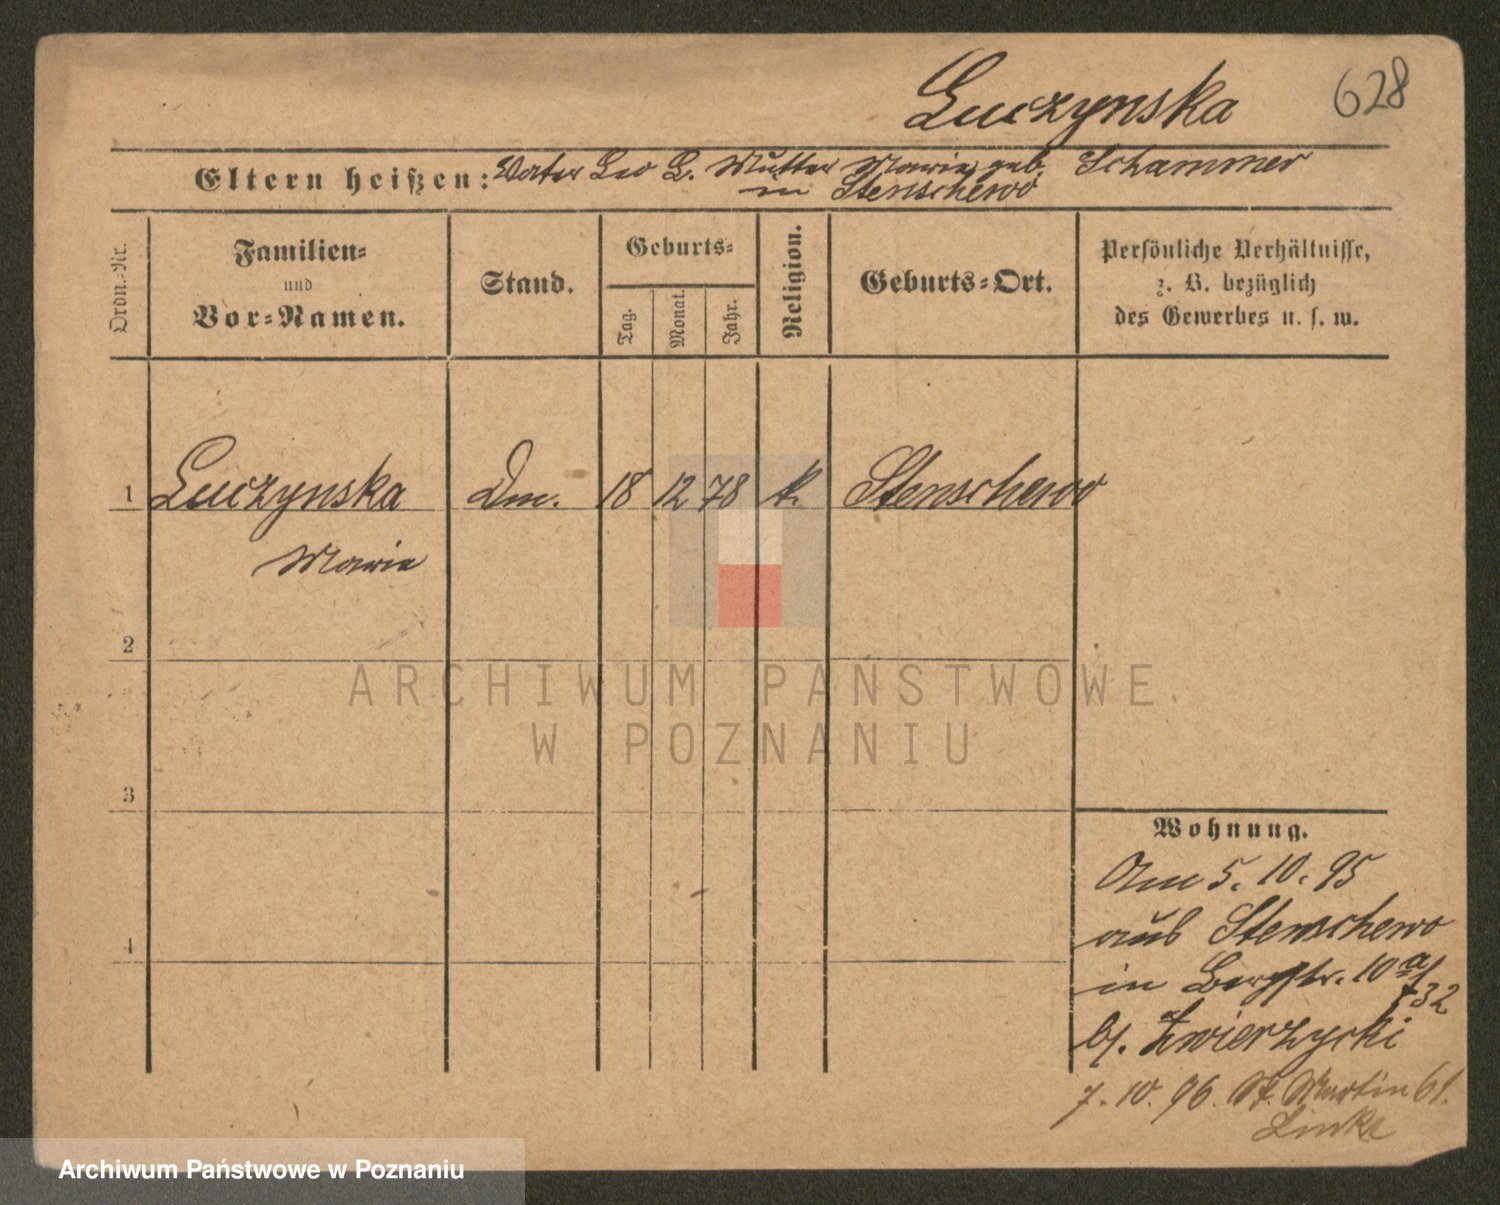 Luczynska 628
Eltern heißen: Vater Leo L. Mutter Marie geb. Schammer
in Stenschewo
Ordn.-Nr.
Familien-
und
Vor-Namen.
Stand.
Geburts-
Tag.
Monat.
Jahr.
Religion.
Geburts-Ort.
Persönliche Verhältnisse,
z. B. bezüglich
des Gewerbes u. s. w.
1 Luczynska Dm. 18 12 78 k. Stenschewo
Marie
2
3
4
ARCHIWUM PAŃSTWOWE
W POZNANIU
Wohnung.
Am 5. 10. 95
aus Stenschewo
in Bergstr. 10a
32
b/. Zwierzycki
7. 10. 96. St. Martin 61.
Linke
Archiwum Państwowe w Poznaniu